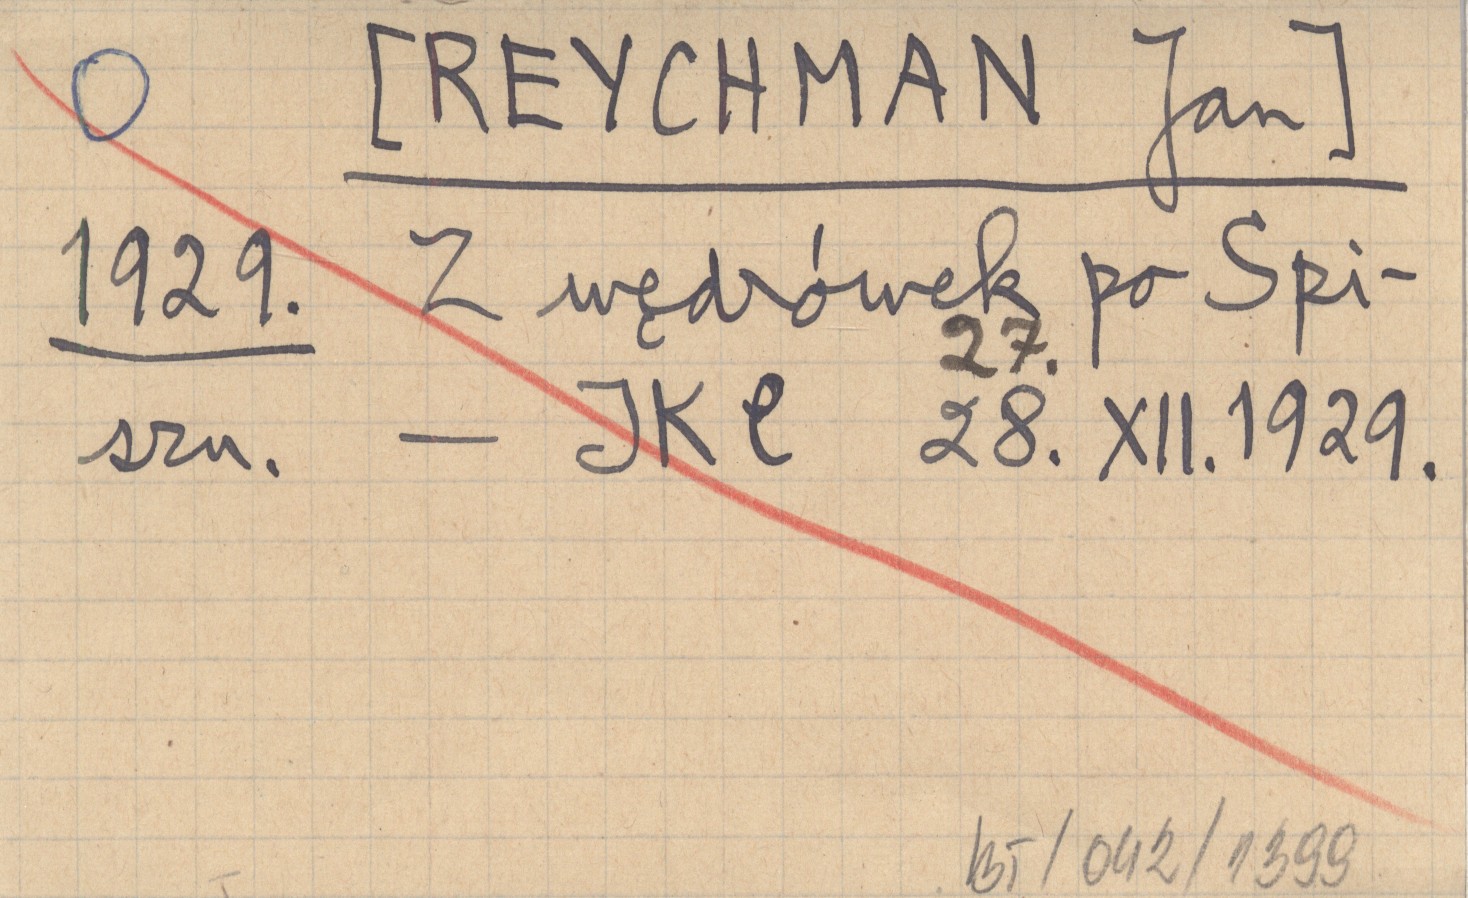 [REYCHMAN Jan]
1929. Z wędrówek po Spi-
27.
szu. — JKC 28. XII. 1929.
BT/042/1399